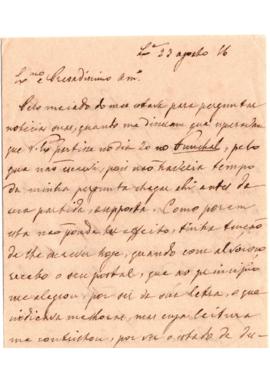 Lx.ª 23 agosto 96
Ex.mo e Presadissimo am.º
Pelo meiado do mez estava para perguntar
noticias suas, quando me disseram que
que partira no dia 20 no Funchal, pelo
que não escrevi, pois não haveria tempo
da minha pergunta chegar ahi antes da
sua partida, supposta. Como porem
esta não effeito, tinha tenção
de lhe escrever hoje, quando com alvoroço
recebo o seu postal, que ao principio
me alegrou, por ser da sua letra, o que
indicava melhoras, mas cuja leitura
me contristou, por ver o estado de